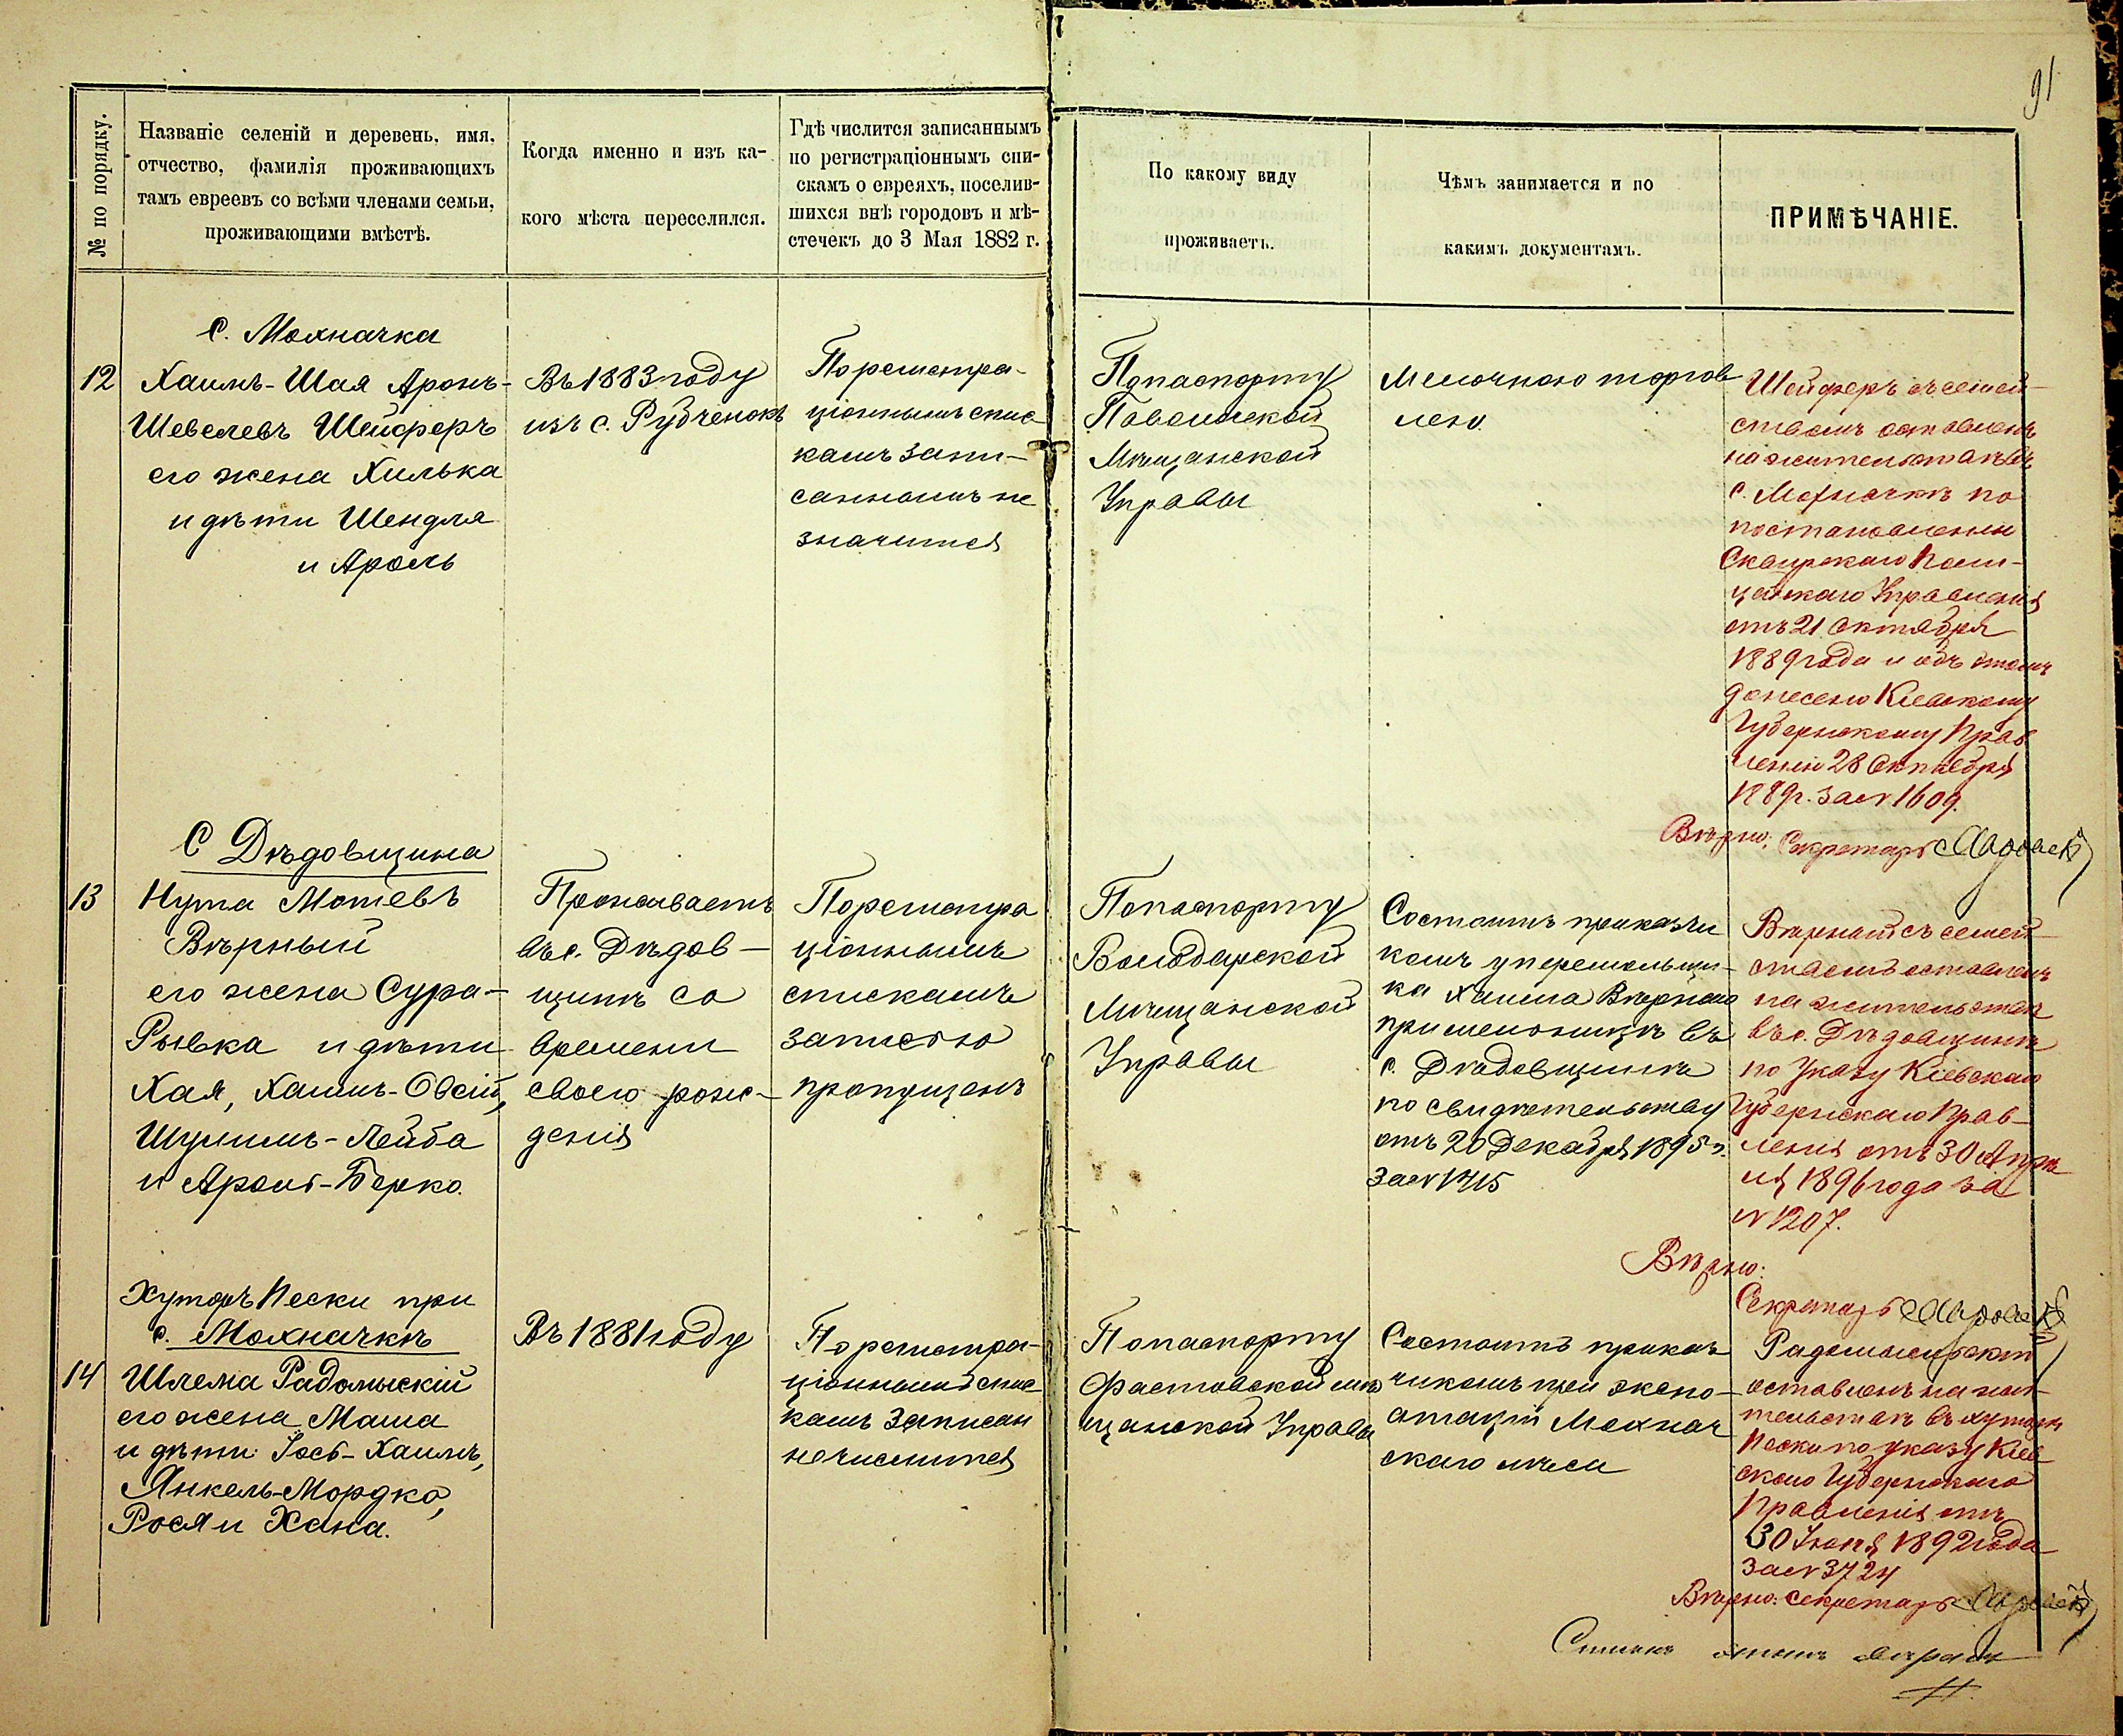 91
№ по порядку.
Названіе селеній и деревень, имя,
отчество, фамилія проживающихъ
тамъ евреевъ со всѣми членами семьи,
проживающими вмѣстѣ.
Когда именно и изъ ка-
кого мѣста переселился.
Гдѣ числится записаннымъ
по регистраціоннымъ спи-
скамъ о евреяхъ, поселив-
шихся внѣ городовъ и мѣ-
стечекъ до 3 Мая 1882 г.
По какому виду
проживаетъ.
Чѣмъ занимается и по
какимъ документамъ.
ПРИМѢЧАНІЕ.
С. Мохначка
12
Хаимъ-Шая Аронъ-
Шевелевъ Шейферъ
его жена Хилька
и дѣти Шендля
и Аронъ
Въ 1883 году
изъ с. Рубченокъ
По регистра-
ціоннымъ спис
камъ запи-
саннымъ не
значится
По паспорту
Паволочской
Мѣщанской
Управы
Мелочною торгов
лею
Шейферъ съ семей-
ствомъ оставленъ
на жительствѣ въ
с. Мохначкѣ по
постановленію
Сквирскаго Поли-
цейскаго Управленія
отъ 21 Октября
1889 года и объ этомъ
донесено Кіевскому
Губернскому Прав
ленію 28 Октября
1889 г. за № 1609.
Вѣрно: Секретарь
С Дѣдовщина
13
Нута Мотевъ
Вѣрный
его жена Сура-
Рывка и дѣти
Хая, Хаимъ-Овсій,
Шулимъ-Лейба
и Аронъ-Берко.
Проживаетъ
въ с. Дѣдов-
щинѣ со
времени
своего рож-
денія
По регистра
ціоннымъ
спискамъ
записью
пропущенъ
По паспорту
Володарской
Мѣщанской
Управы
Состоитъ приказчи
комъ у перемольщи-
ка Хаима Вѣрнаго
при мельницѣ въ
с. Дѣдовщинѣ
по свидѣтельству
отъ 20 Декабря 1895 г.
за № 1415
Вѣрный съ семей-
ствомъ оставленъ
на жительствѣ
въ с. Дѣдовщинѣ
по Указу Кіевскаго
Губернскаго Прав-
ленія отъ 30 Апрѣ
ля 1896 года за
№ 1207.
Вѣрно:
Секретарь
Хуторъ Пески при
с. Мохначкѣ
14
Шлема Радомыскій
его жена Маша
и дѣти: Іось-Хаимъ,
Янкель-Мордко,
Рося и Хана.
Въ 1881 году
По регистра-
ціоннымъ спис
камъ записан
не числится
По паспорту
Фастовской мѣ
щанской Управы
Состоитъ приказ
чикомъ при экспло-
атаціи Мохнач
скаго лѣса
Радомысльскій
оставленъ на жи-
тельствѣ въ хуторѣ
Пески по указу Кіев
скаго Губернскаго
Правленія отъ
30 Іюня 1892 года
за № 3724
Вѣрно: Секретарь